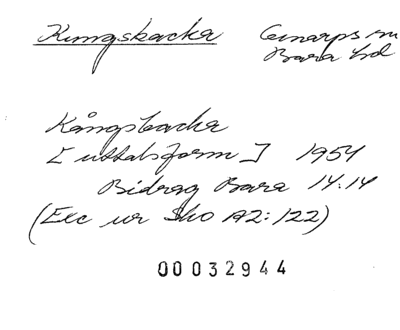 Kungsbacka Genarps sn
Bara hd
Kångsbacka
[uttalsform] 1954
Bidrag Bara 14:14
(Exc ur Sko A2:122)
00032944